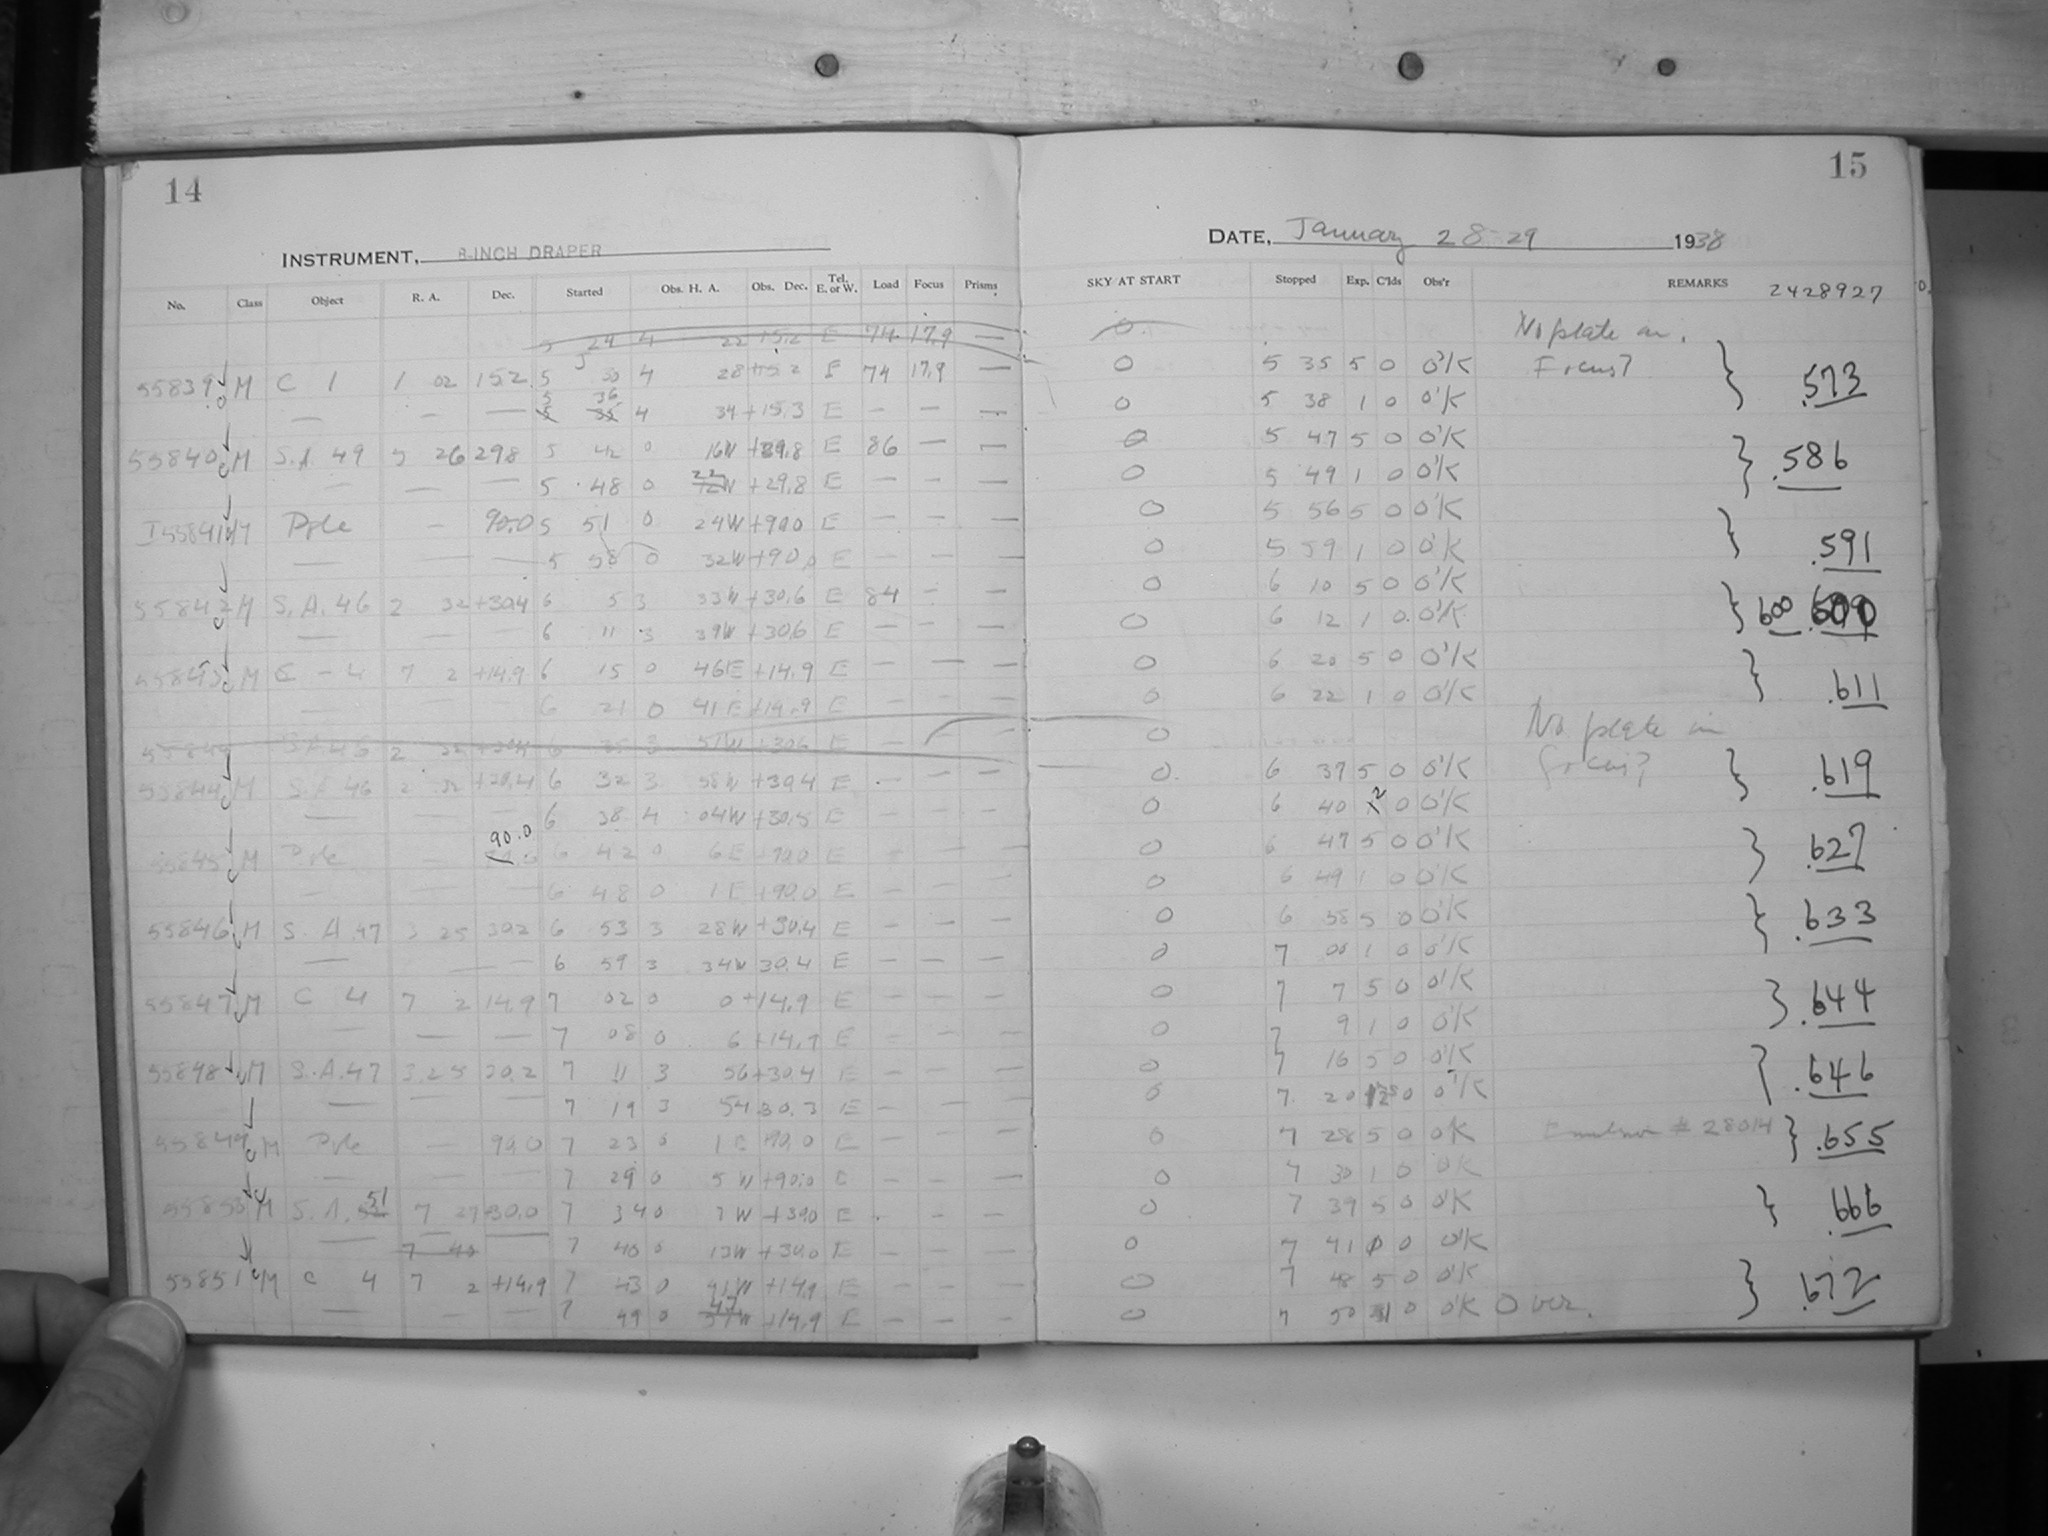 14
15
INSTRUMENT, 8-INCH DRAPER
DATE, January 28-29 1938
No. Class Object R. A. Dec. Started Obs. H. A. Obs. Dec. Tel. E. or W. Load Focus Prisms
SKY AT START Stopped Exp. C'lds Obs'r REMARKS 2428927
5 24 4 22 15.2 E 74 17.9 — 0 No plate in
55839 M C 1 1 02 15 2 5 30 4 28 +15.2 E 74 17.9 — 0 5 35 5 0 O'K Focus? .573
— — — 5 36 4 34 +15.3 E — — — 0 5 38 1 0 O'K
55840 M S.A. 49 5 26 29 8 5 42 0 16W +29.8 E 86 — — 0 5 47 5 0 O'K .586
— — — 5 48 0 22 W +29.8 E — — — 0 5 49 1 0 O'K
I 55841 M Pole — 90.0 5 51 0 24W +90.0 E — — — 0 5 56 5 0 O'K .591
— — — 5 58 0 32W +90.0 E — — — 0 5 59 1 0 O'K
55842 M S.A. 46 2 32 +30.4 6 5 3 33W +30.6 E 84 — — 0 6 10 5 0 O'K 600
— — — 6 11 3 39W +30.6 E — — — 0 6 12 1 0 O'K
55843 M C - 4 7 2 +14.9 6 15 0 46E +14.9 E — — — 0 6 20 5 0 O'K .611
— — — 6 21 0 41E +14.9 E — — — 0 6 22 1 0 O'K
55844 S.A. 46 2 32 +30.4 6 25 3 51W +30.6 E — — — 0 No plate in
55844 M S.A. 46 2 32 +30.4 6 32 3 58W +30.4 E — — 0 6 37 5 0 O'K focus? .619
— — — 6 38 4 04W +30.5 E — — — 0 6 40 2 0 O'K
55845 M Pole — 90.0 6 42 0 6E +90.0 E — — — 0 6 47 5 0 O'K .627
— — — 6 48 0 1E +90.0 E — — — 0 6 49 1 0 O'K
55846 M S.A. 47 3 25 30.2 6 53 3 28W +30.4 E — — — 0 6 58 5 0 O'K .633
— — — 6 59 3 34W 30.4 E — — — 0 7 00 1 0 O'K
55847 M C 4 7 2 14.9 7 02 0 0 +14.9 E — — — 0 7 7 5 0 O'K .644
— — — 7 08 0 6 +14.9 E — — — 0 7 9 1 0 O'K
55848 M S.A. 47 3 25 30.2 7 11 3 56 +30.4 E — — — 0 7 16 5 0 O'K .646
— — — 7 19 3 54 30.3 E — — — 0 7 20 0 O'K
55849 M Pole — 90.0 7 23 0 1E +90.0 E — — — 0 7 28 5 0 O'K Emulsion # 28014 .655
— — — 7 29 0 5W +90.0 E — — — 0 7 30 1 0 O'K
55850 M S.A. 51 7 27 +30.0 7 34 0 7W +30.0 E — — 0 7 39 5 0 O'K .666
— 7 40 — 7 40 0 13W +30.0 E — — — 0 7 41 0 O'K
55851 M C 4 7 2 +14.9 7 43 0 41W +14.9 E — — — 0 7 48 5 0 O'K .672
— — — 7 49 0 47 W +14.9 E — — — 0 7 50 1 0 O'K Over.